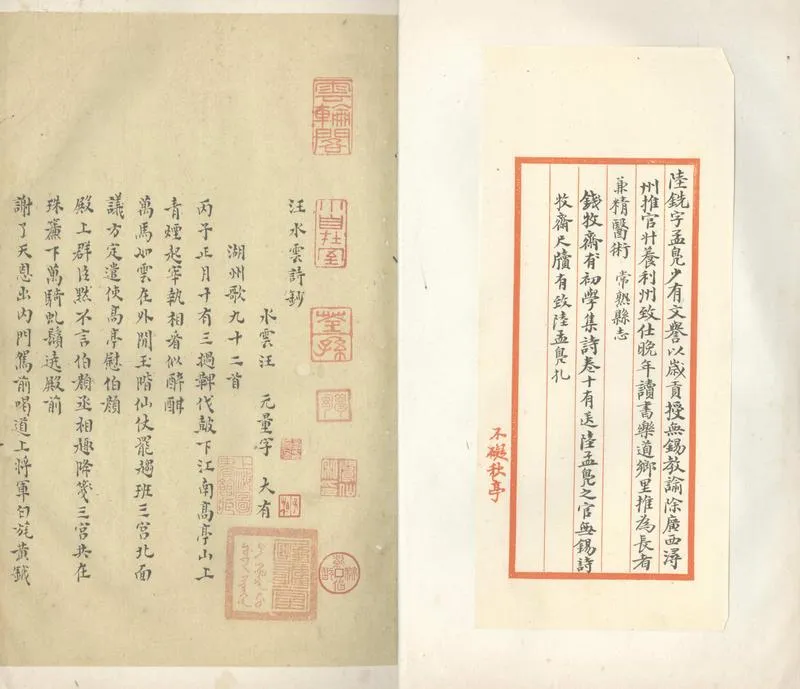 陸銑字孟鳧少有文譽以歲貢授無錫教諭除廣西潯
州推官廾養利州致仕晚年讀書樂道鄉里推為長者
兼精醫術 常熟縣志
錢牧齋有初學集詩卷十有送陸孟鳧之官無錫詩
牧齋尺牘有致陸孟鳧札
不礙秋亭
雲輪閣
荃孫
汪水雲詩鈔
水雲汪 元量字 大有
湖州歌九十二首
丙子正月十有三撾鞞伐鼓下江南髙亭山上
青煙起宰執相看似醉酣
萬馬如雲在外閒玉階仙仗罷趨班三宮北面
議方定遣使髙亭慰伯顏
殿上群臣黙不言伯顏丞相趣降箋三宮共在
珠簾下萬騎虬鬚遶殿前
謝了天恩出內門駕前喝道上將軍白旄黃鉞